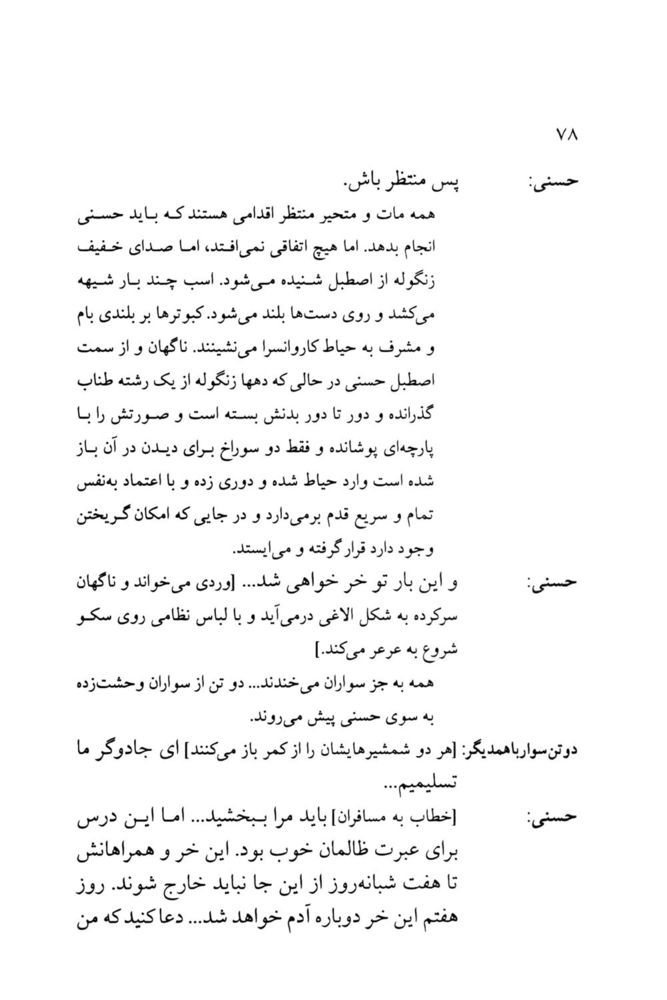 ۷۸
حسنی: پس منتظر باش.
همه مات و متحیر منتظر اقدامی هستند که باید حسنی
انجام بدهد. اما هیچ اتفاقی نمی‌افتد، اما صدای خفیف
زنگوله از اصطبل شنیده می‌شود. اسب چند بار شیهه
می‌کشد و روی دست‌ها بلند می‌شود. کبوترها بر بلندی بام
و مشرف به حیاط کاروانسرا می‌نشینند. ناگهان و از سمت
اصطبل حسنی در حالی که دهها زنگوله از یک رشته طناب
گذرانده و دور تا دور بدنش بسته است و صورتش را با
پارچه‌ای پوشانده و فقط دو سوراخ برای دیدن در آن باز
شده است وارد حیاط شده و دوری زده و با اعتماد به‌نفس
تمام و سریع قدم برمی‌دارد و در جایی که امکان گریختن
وجود دارد قرار گرفته و می‌ایستد.
حسنی: و این بار تو خر خواهی شد... [وردی می‌خواند و ناگهان
سرکرده به شکل الاغی درمی‌آید و با لباس نظامی روی سکو
شروع به عرعر می‌کند.]
همه به جز سواران می‌خندند... دو تن از سواران وحشت‌زده
به سوی حسنی پیش می‌روند.
دو تن سوار با همدیگر: [هر دو شمشیرهایشان را از کمر باز می‌کنند] ای جادوگر ما
تسلیمیم...
حسنی: [خطاب به مسافران] باید مرا ببخشید... اما این درس
برای عبرت ظالمان خوب بود. این خر و همراهانش
تا هفت شبانه‌روز از این جا نباید خارج شوند. روز
هفتم این خر دوباره آدم خواهد شد... دعا کنید که من